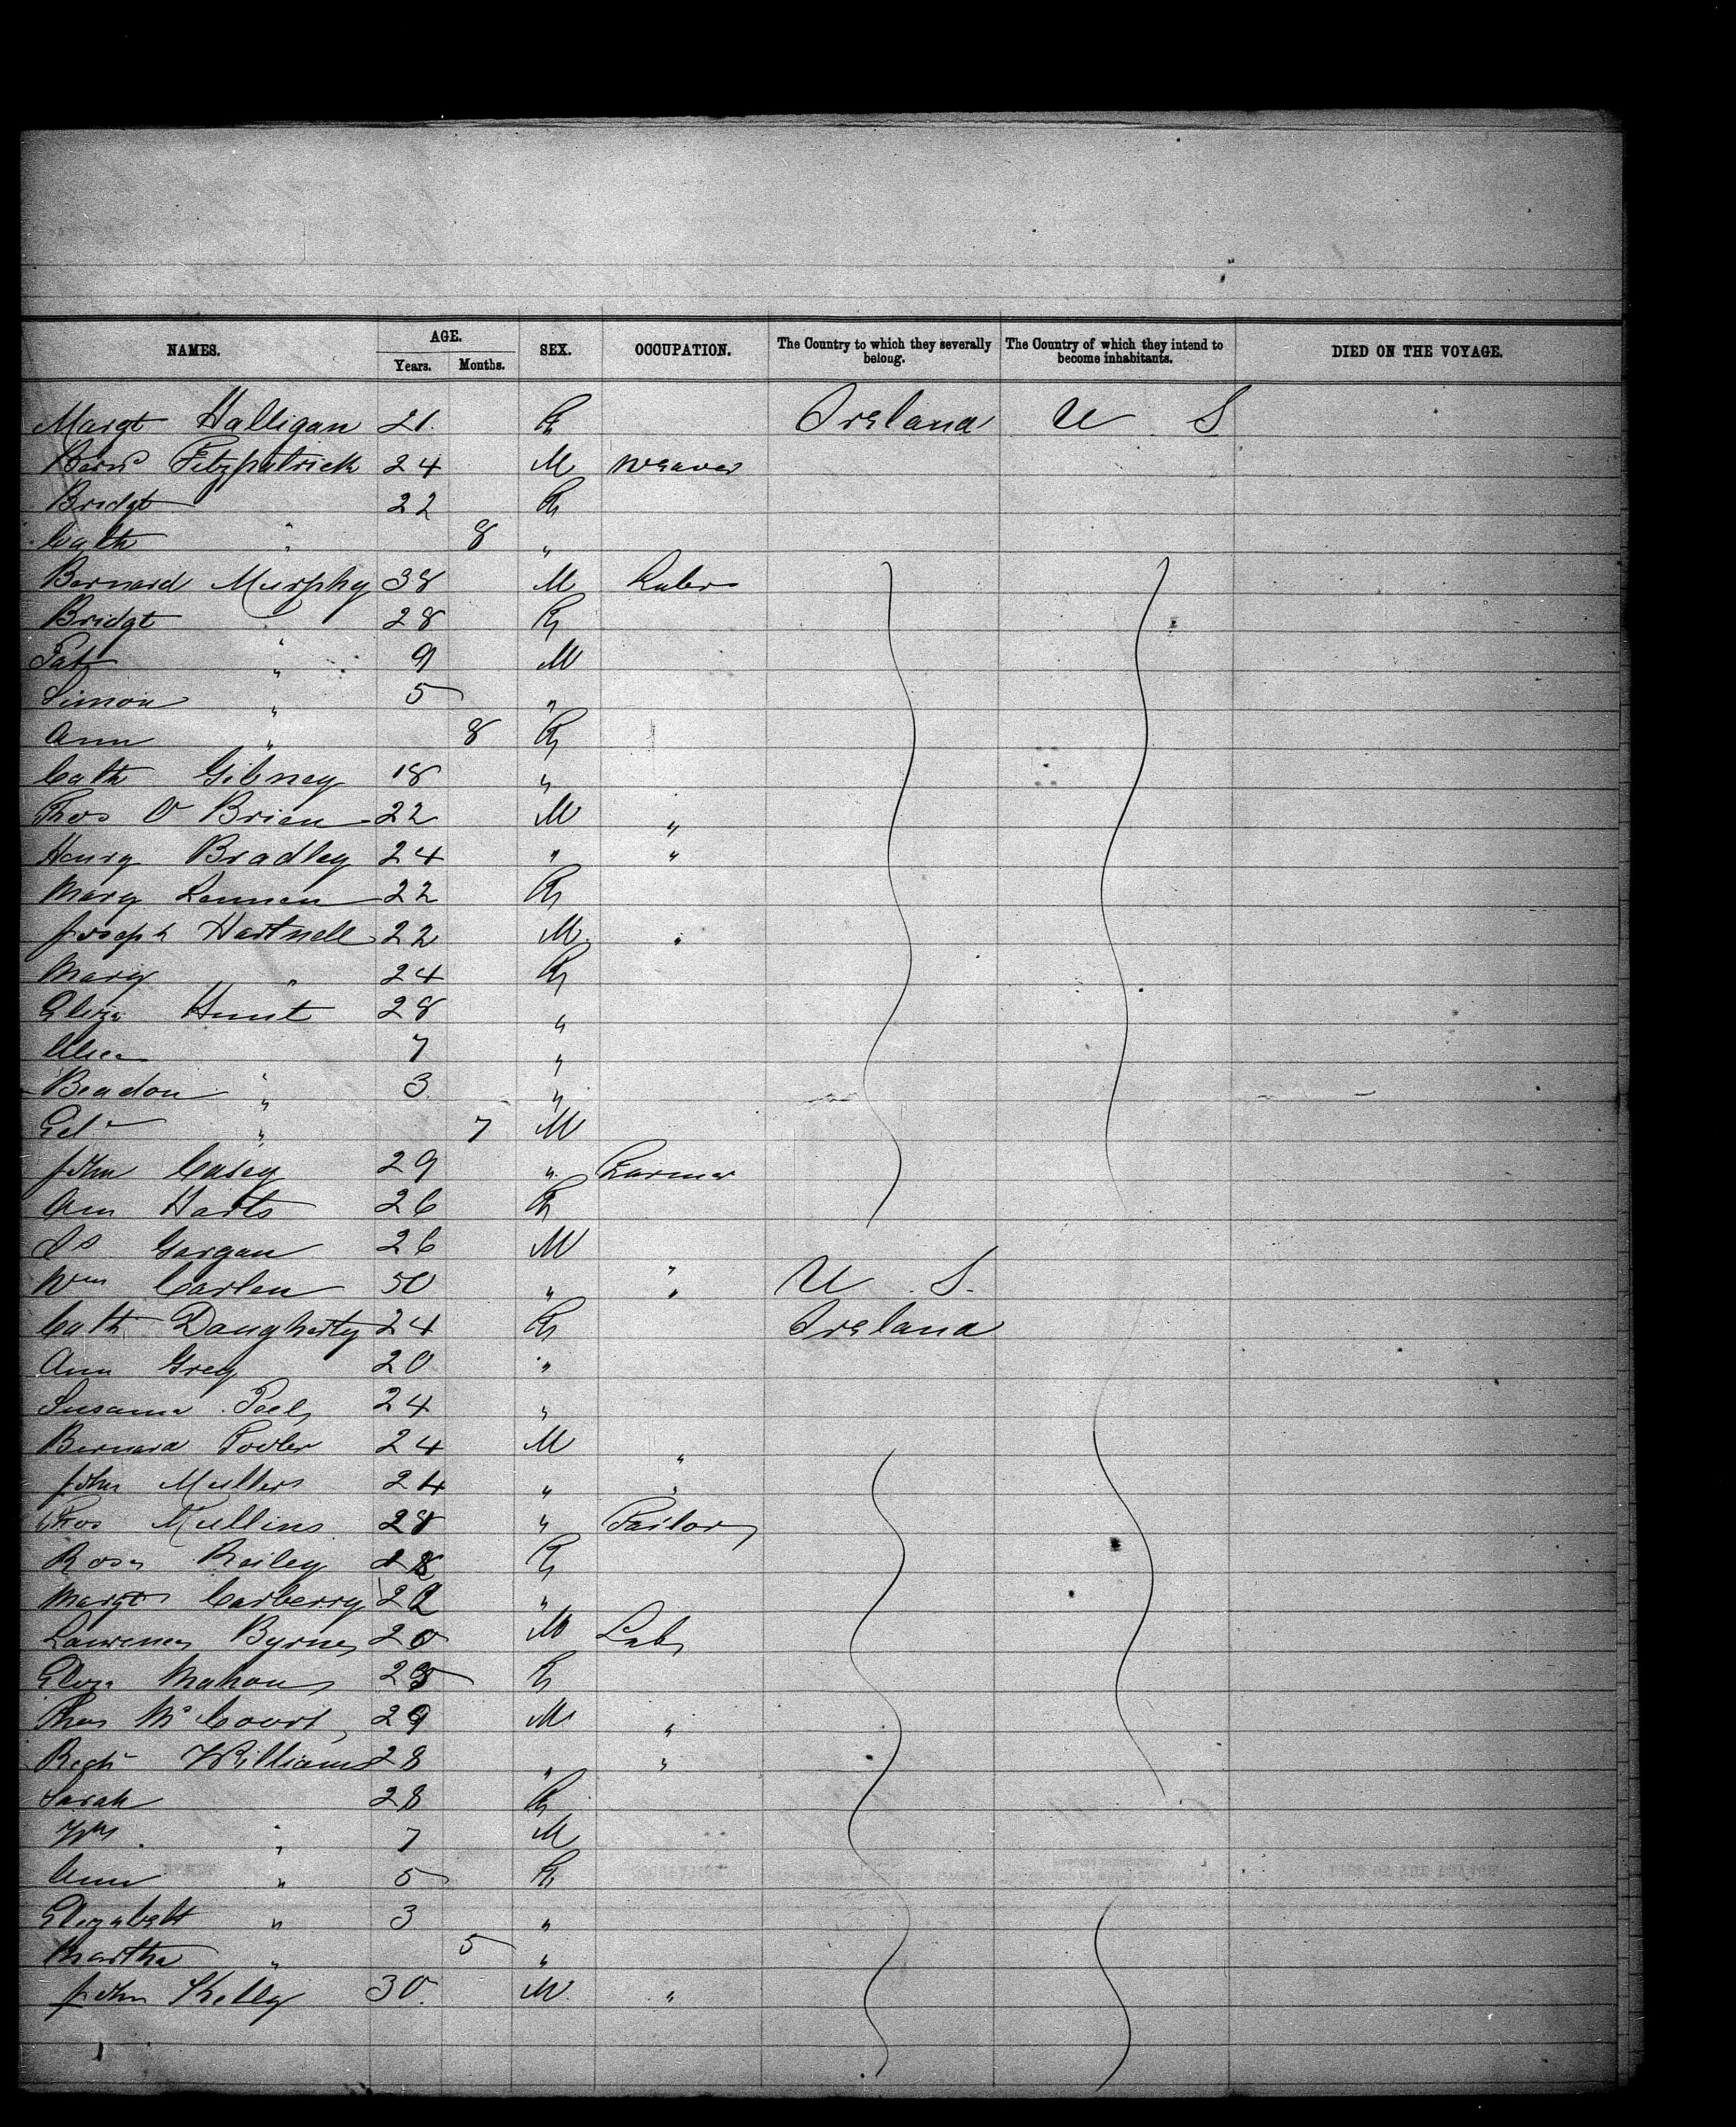 NAMES. AGE. Years. Months. SEX. OCCUPATION. The Country to which they severally belong. The Country of which they intend to become inhabitants. DIED ON THE VOYAGE.
Margt Halligan 21 F Ireland U S
Bernd Fitzpatrick 24 M Weaver
Bridgt 22 F
Cath " 8 "
Bernard Murphy 38 M Labr
Bridgt " 28 F
Pat " 9 M
Simon " 5 "
Ann " 8 F
Cath Gibney 18 "
Thos O Brien 22 M "
Henry Bradley 24 " "
Mary Lennen 22 F
Joseph Hartnell 22 M "
Mary " 24 F
Eliza Hunt 28 "
Alice " 7 "
" 3 "
Edd " 7 M
John Casey 29 " Farmer
Ann Harts 26 F
Gargan 26 M "
Wm Carlen 50 " " U S.
Cath Daugherty 24 F Ireland
Ann Grey 20 "
Susanna 24 "
Bernard 24 M "
John 24 " "
Thos Mullins 28 " Tailor
Rose Reiley F
Margt Carberry "
Lawrence Byrne 20 M Lab
Eliza Mahon F
Thos McCourt 29 M "
Richd Williams 28 " "
Sarah 28 F
Wm " 7 M
Ann " 5 F
Elizabeth " 3 "
Martha " 5 "
John Kelly 30 M "